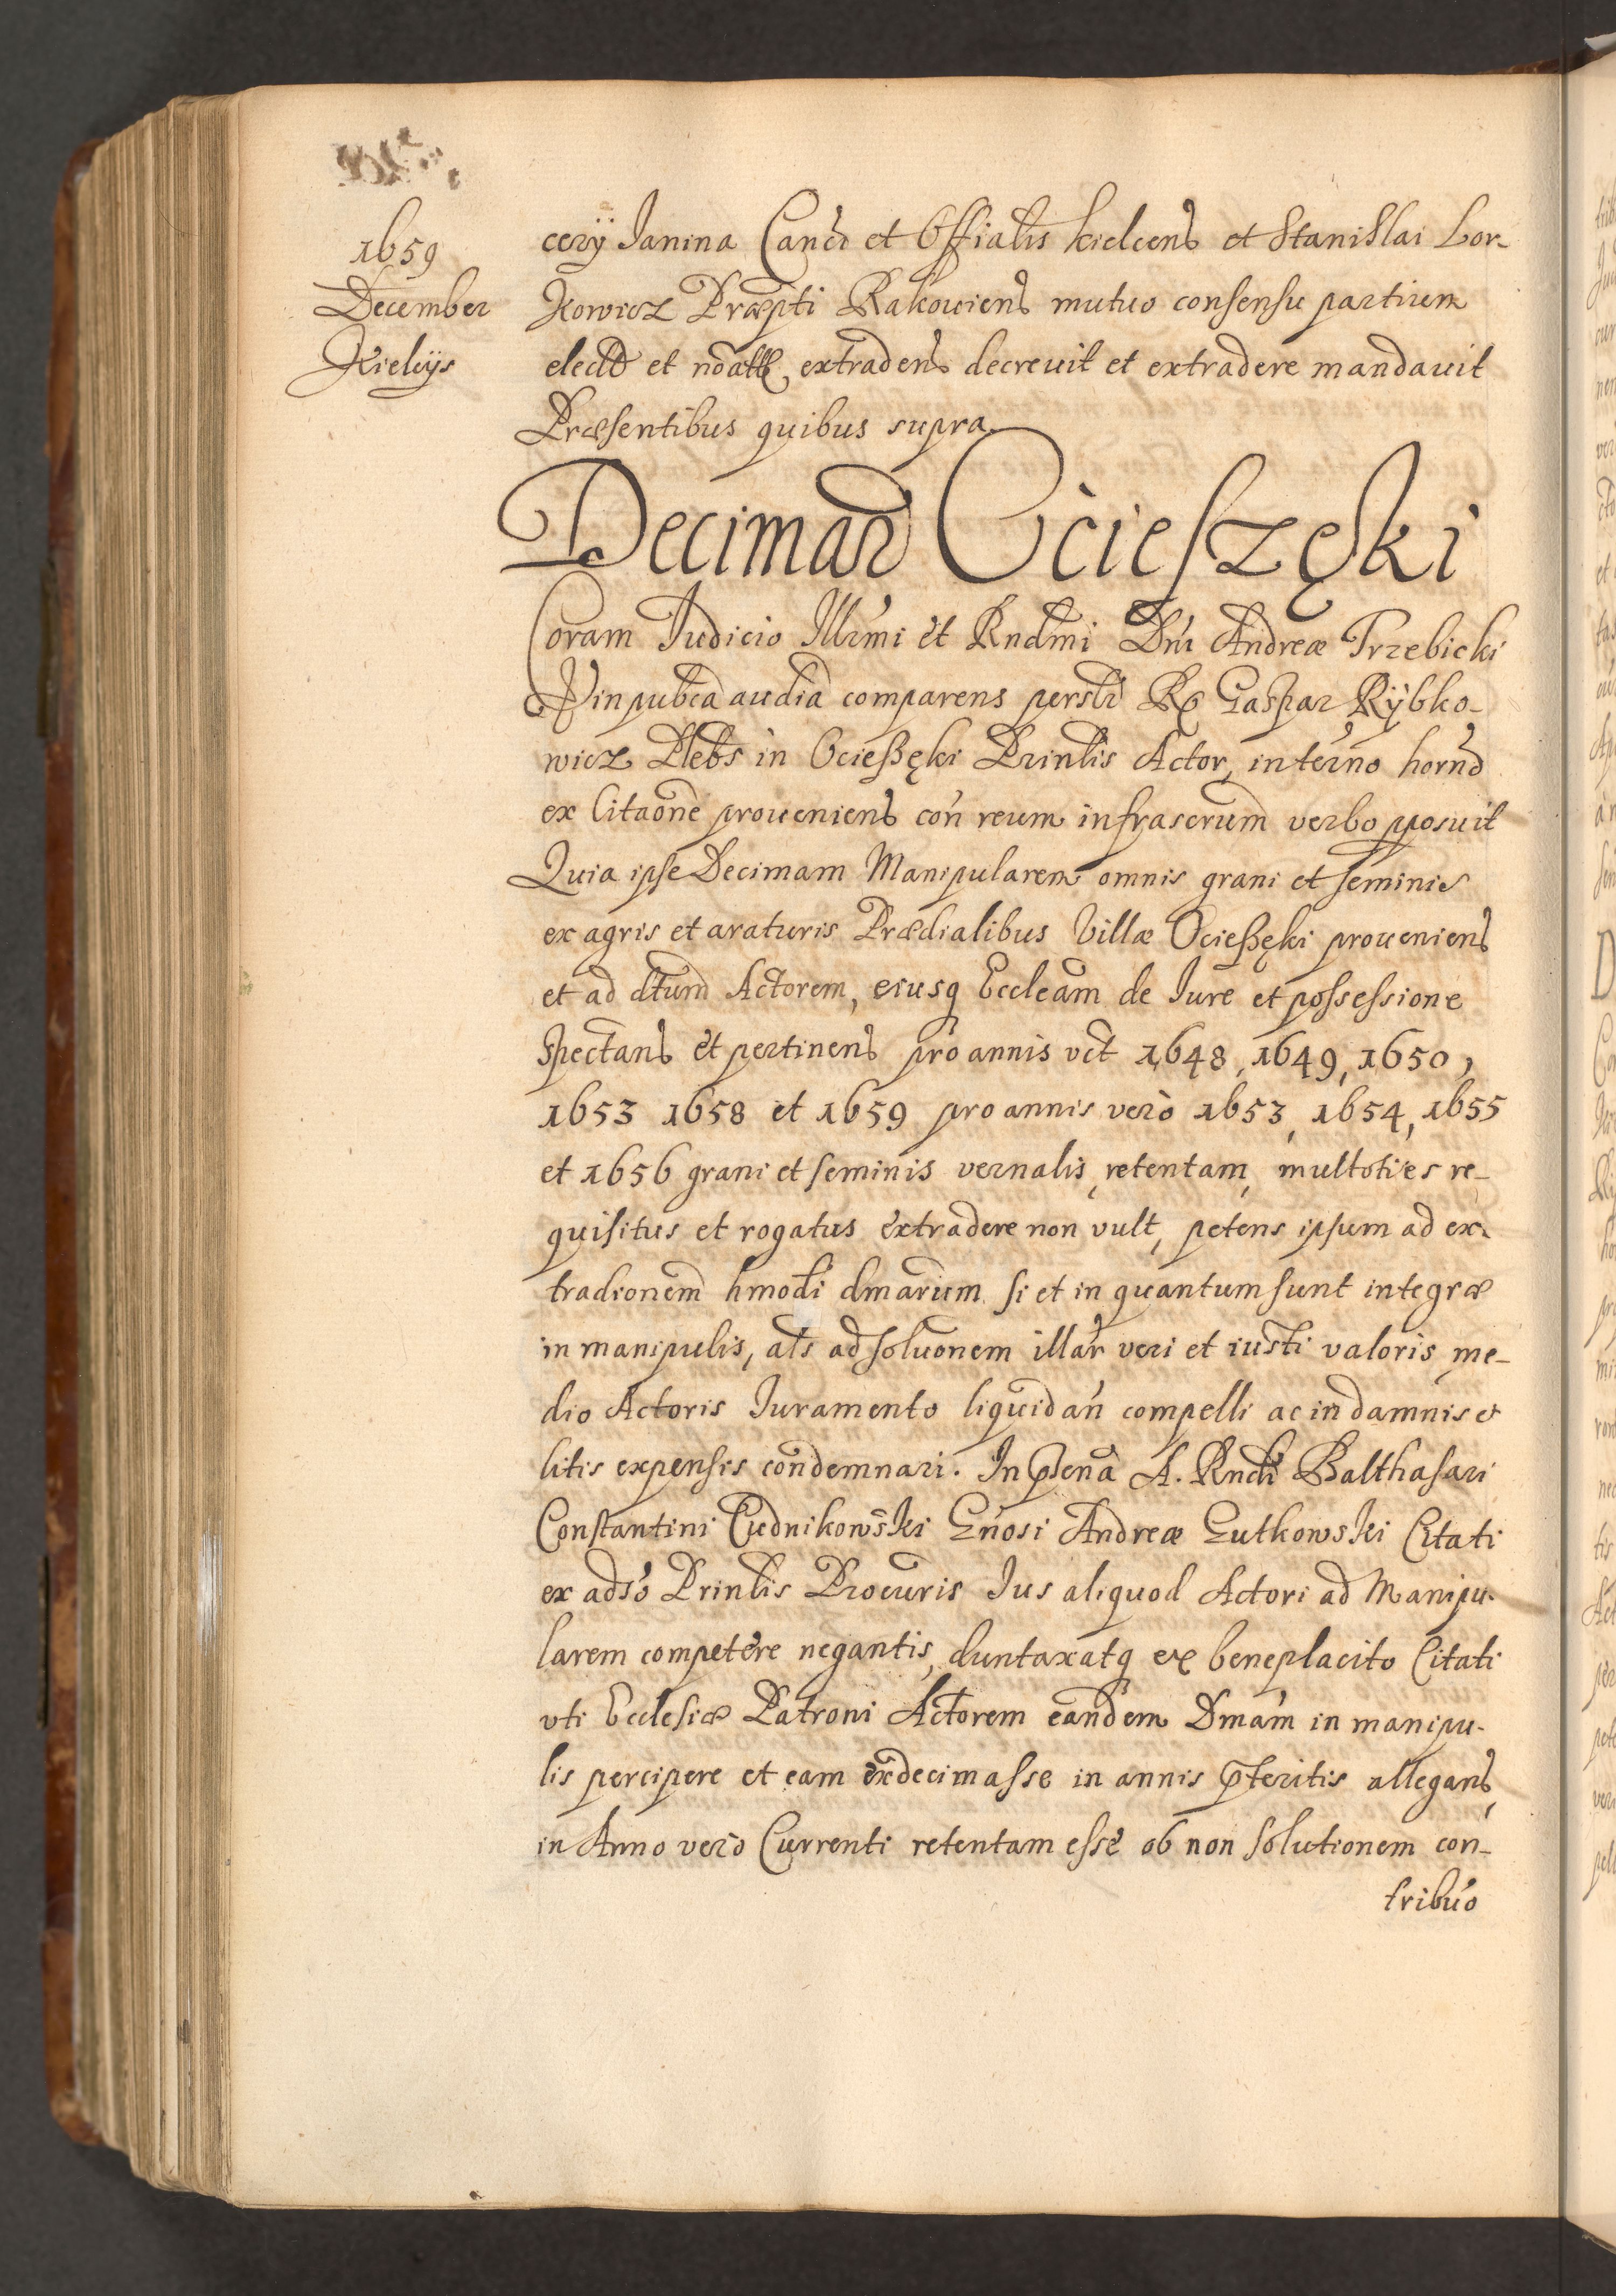 1659
December
Kielijs
cerij Janina Canci et Offialis Kielcens et Stanislai Lor-
kowicz Præpti Rakoviens mutuo consensu partium
elect et noat extradens decrevit et extradere mandavit
Præsentibus quibus supra.
Decimar Ocieszęki
Coram Judicio Illrmi et Rndmi Dni Andreæ Trzebicki
in pubca audia comparens persлr R Gaspar Rÿbko-
wicz Plebs in Ocießęki Prinlis Actor, in terno hornd
ex Citaone proveniens con reum infrascrum verbo pposuit
Quia ipse Decimam Manipularem omnis grani et seminis
ex agris et araturis Prædialibus Villæ Ocießęki proveniens
et ad dtum Actorem, eiusq Eccleam de Iure et possessione
spectans et pertinens pro annis vct 1648, 1649, 1650,
1653 1658 et 1659 pro annis verò 1653, 1654, 1655
et 1656 grani et seminis vernalis, retentam, multoties re-
quisitus et rogatus extradere non vult, petens ipsum ad ex-
tradionem hmodi dmarum si et in quantum sunt integræ
in manipulis, als ad soluonem illar veri et iusti valoris me-
dio Actoris Iuramento liquidan compelli ac in damnis et
litis expensis condemnari. In pсena A. Rndi Balthasari
Constantini Cudnikowski Gnosi Andreæ Gutkowski Citati
ex adso Prinlis Procuris Ius aliquod Actori ad Manipu-
larem competere negantis, duntaxatq ex beneplacito Citati
uti Ecclesiæ Patroni Actorem eandem Dmam in manipu-
lis percipere et eam exdecimasse in annis pteritis allegans,
in Anno verò Currenti retentam esse ob non solutionem con-
tribuo